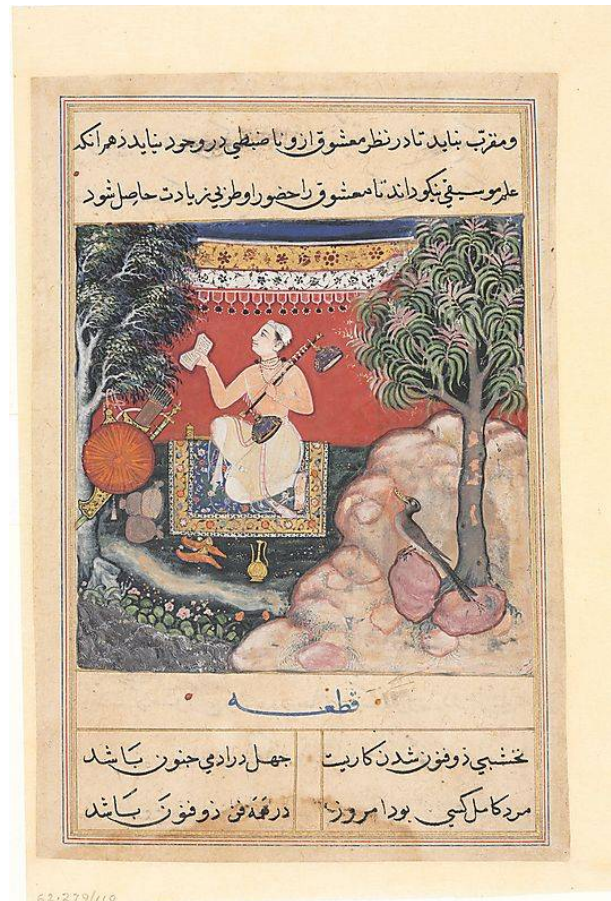 ومقرب نباید تا در نظر معشوق ازو نا ضبطی در وجود نیاید دهم انکه
علم موسیقی نیکو داند تا معشوق را حضور او طربی زیادت حاصل شود
قطعه
نخشبی ذوفنون شدن کاریت جهل در ادمی جنون باشد
مرد کامل کسی بود امروز در همه فن ذوفنون باشد
62.279/110